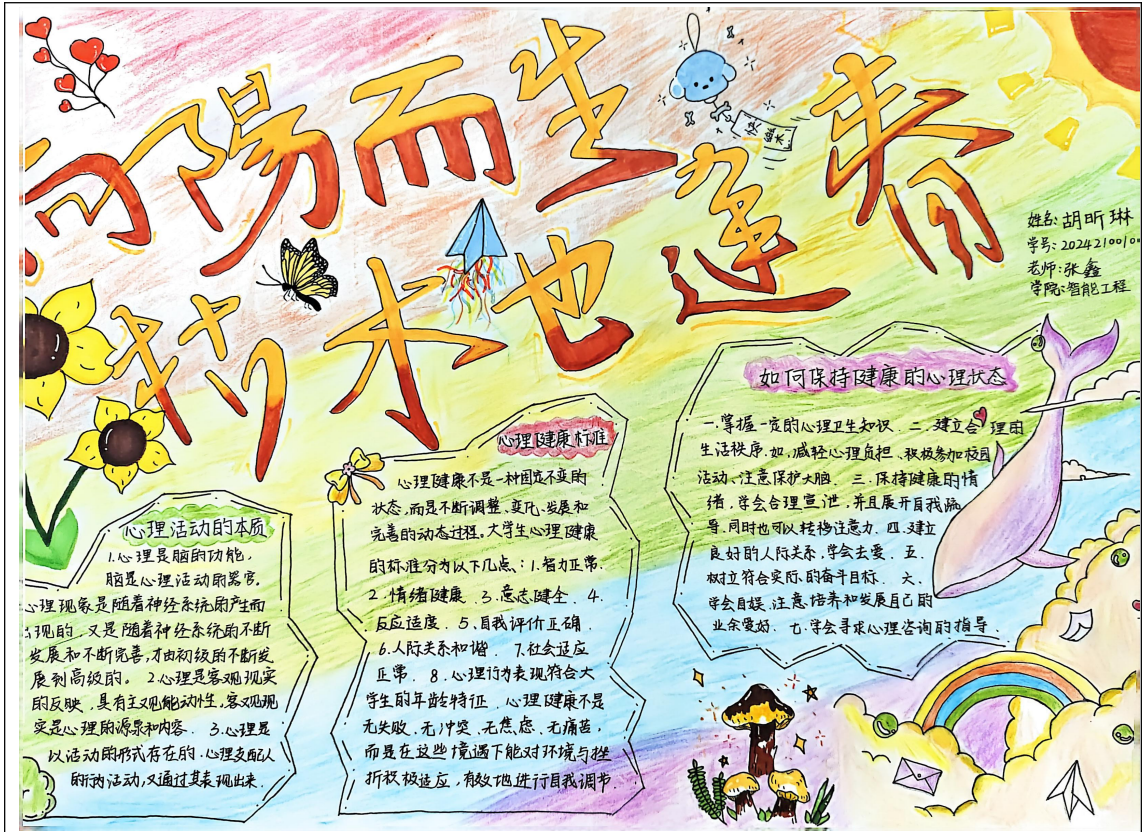 向陽而生
枯木也逢春
快樂
姓名:胡昕琳
学号:2024210010
老师:张鑫
学院:智能工程
心理活动的本质
1.心理是脑的功能,
脑是心理活动的器官。
心理现象是随着神经系统的产而
出现的,又是随着神经系统的不断
发展和不断完善,才由初级的不断发
展到高级的。 2.心理是客观现实
的反映,具有主观能动性,客观现
实是心理的源泉和内容. 3.心理是
以活动的形式存在的.心理支配人
的活动,又通过其表现出来.
心理健康标准
心理健康不是一种固定不变的
状态,而是不断调整、变化、发展和
完善的动态过程。大学生心理健康
的标准分为以下几点、:1.智力正常.
2.情绪健康.3.意志健全.4.
反应适度.5.自我评价正确.
6.人际关系和谐.7.社会适应
正常.8.心理行为表现符合大
学生的年龄特征.心理健康不是
无失败、无冲突、无焦虑、无痛苦,
而是在这些境遇下能对环境与挫
折积极适应,有效地进行自我调节.
如何保持健康的心理状态
一.掌握一定的心理卫生知识.二.建立合理的
生活秩序.如,减轻心理负担、积极参加校园
活动、注意保护大脑.三.保持健康的情
绪,学会合理宣泄,并且展开自我疏
导.同时也可以转移注意力.四.建立
良好的人际关系,学会去爱.五.
树立符合实际的奋斗目标.六.
学会自娱.注意培养和发展自己的
业余爱好.七.学会寻求心理咨询的指导.